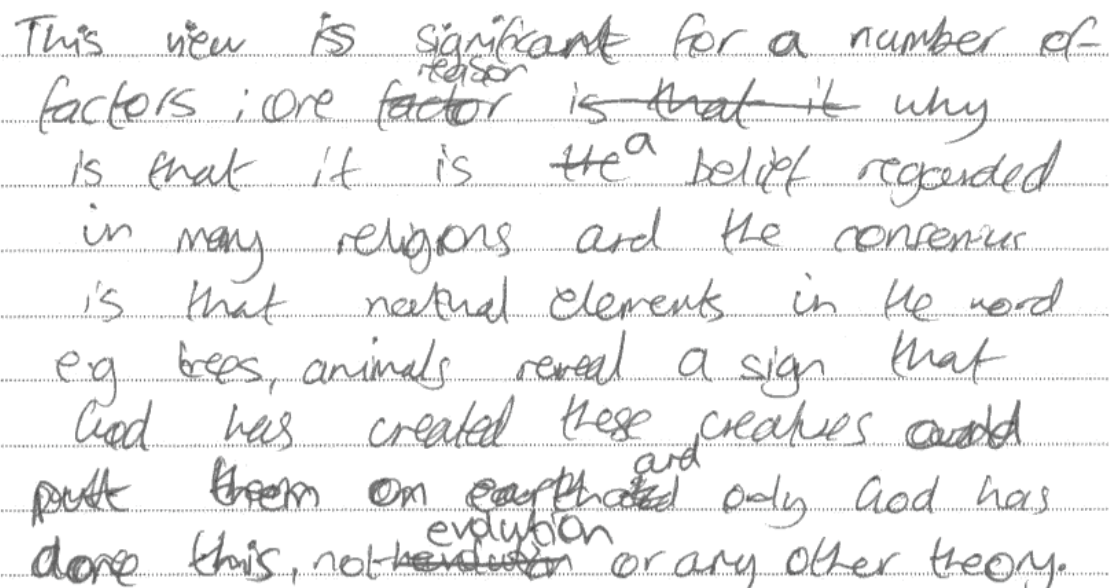 This view is significant for a number of
factors ; one reason why
is that it is a belief regarded
in many religions and the consensus
is that natural elements in the word
eg trees, animals reveal a sign that
God has created these creatures and
put them on earth and only God has
done this, not evolution or any other theory.